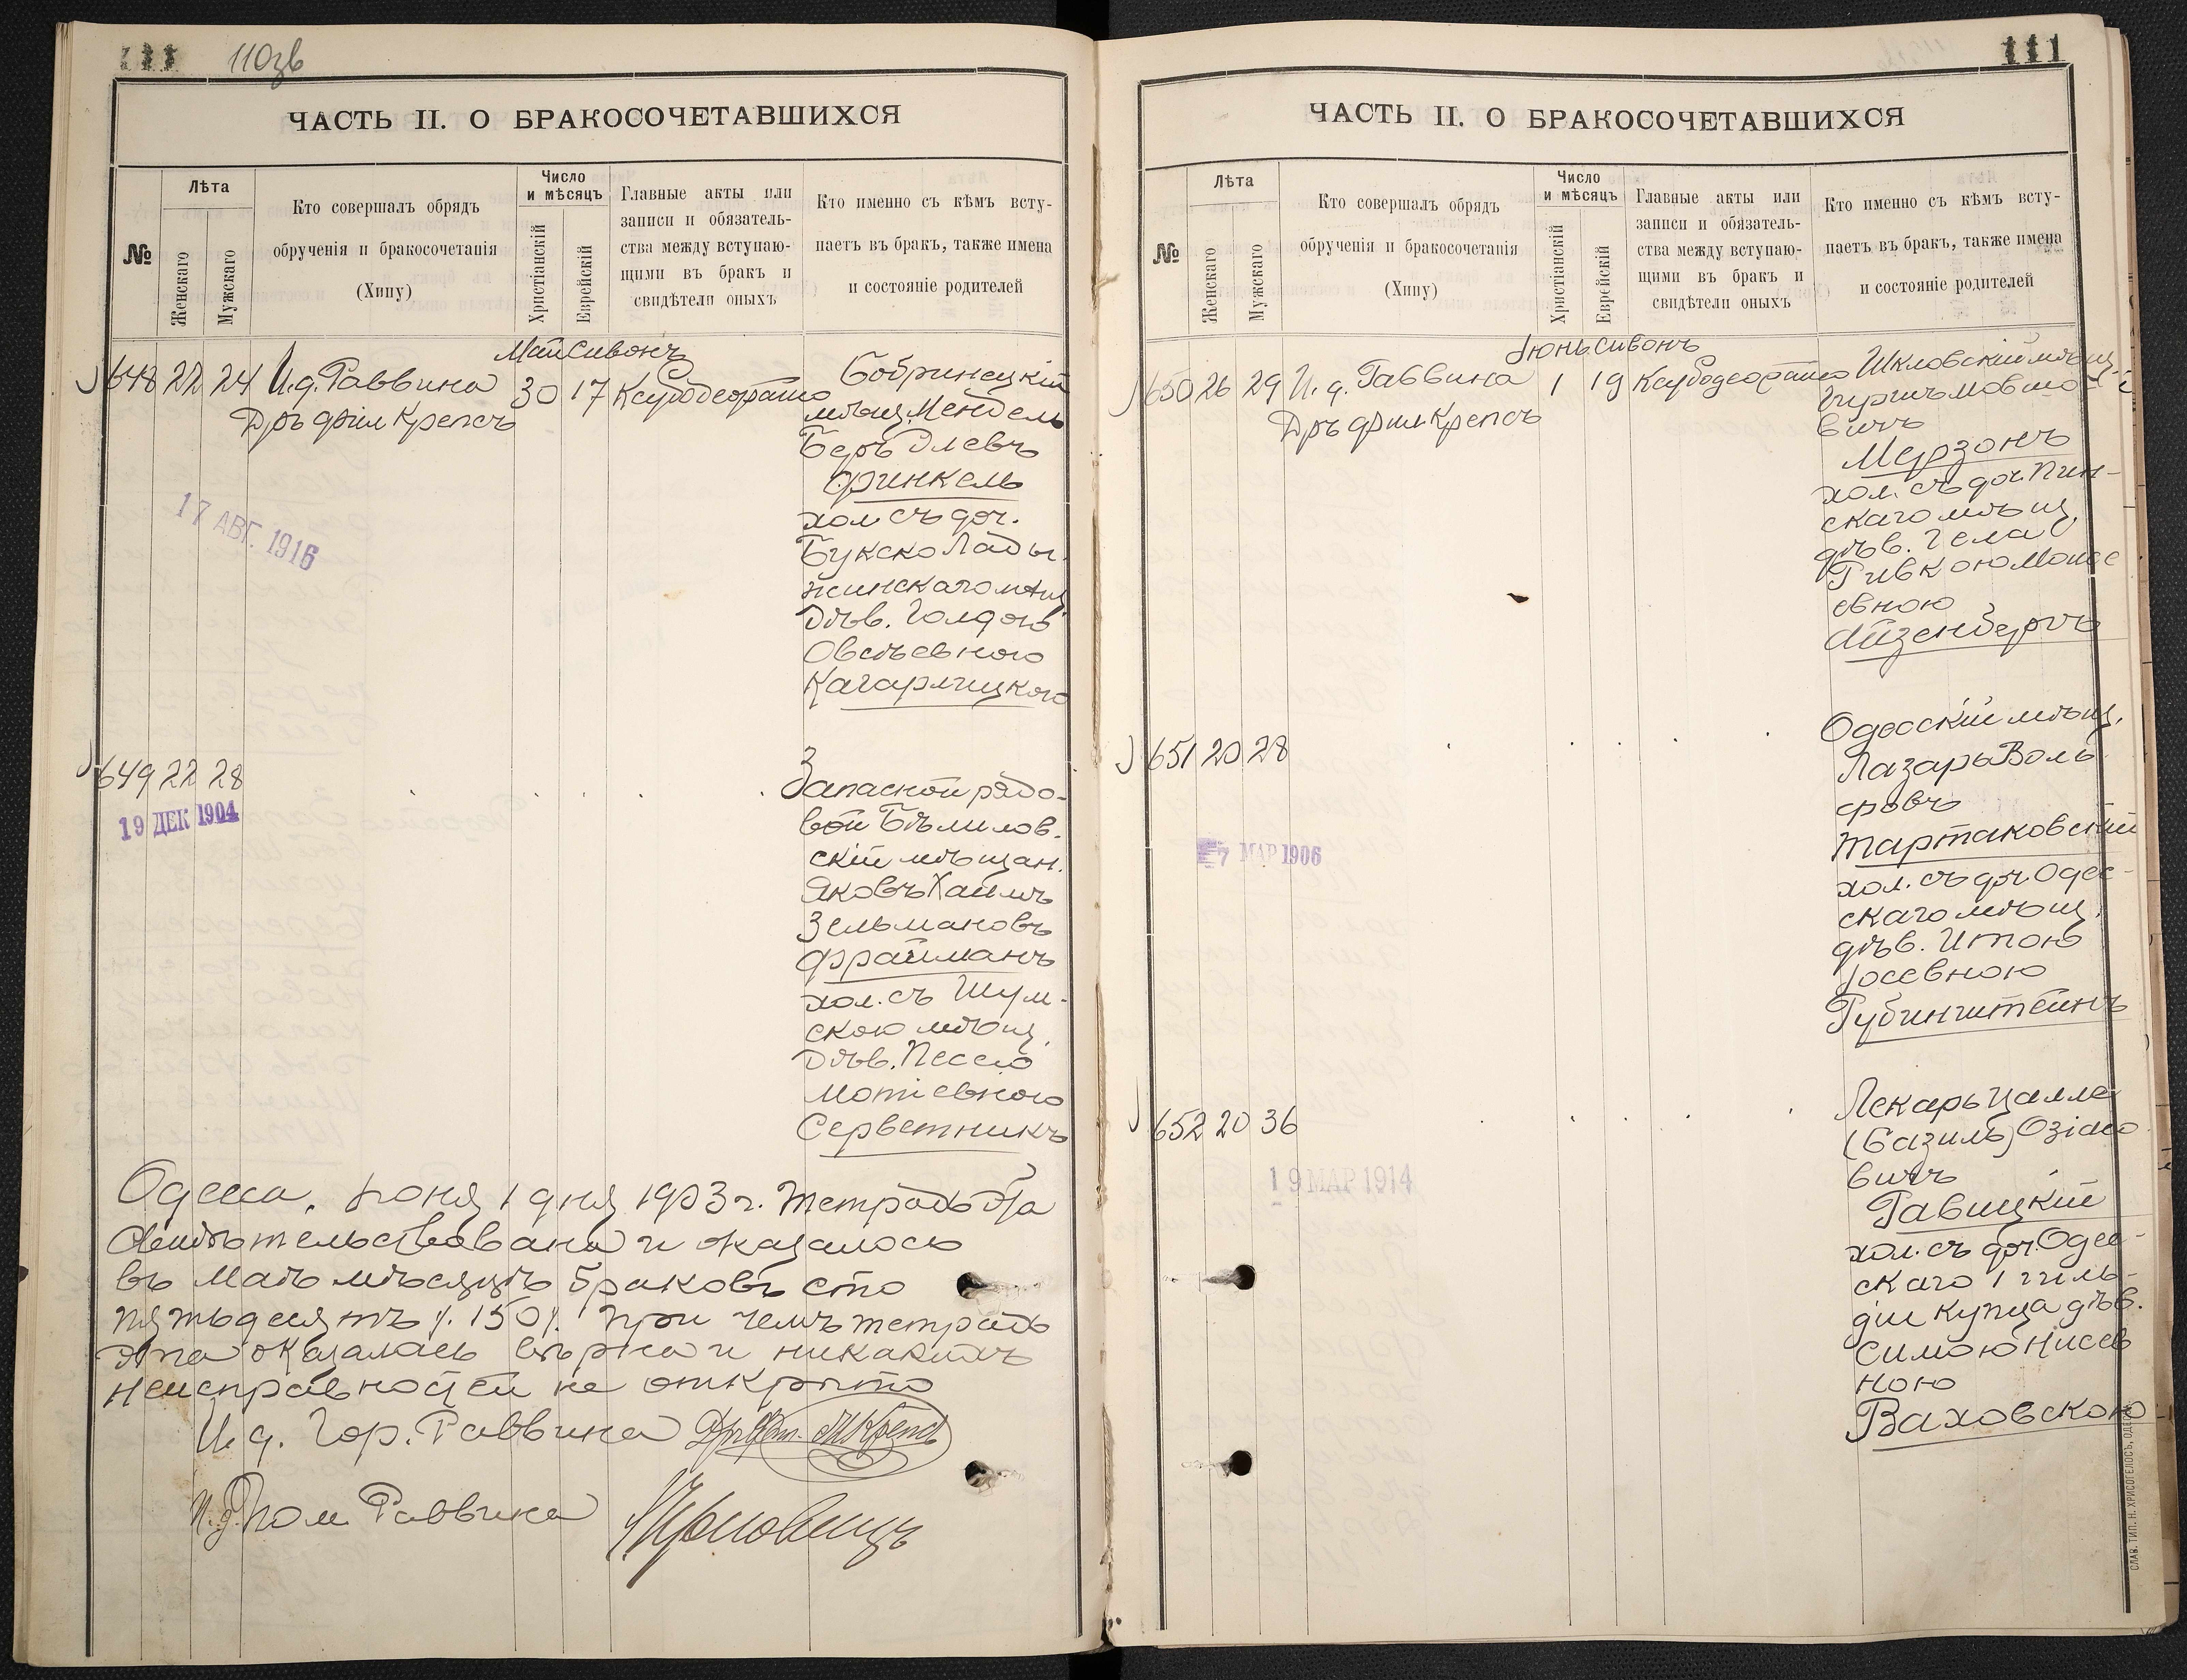 110зв
ЧАСТЬ II. О БРАКОСОЧЕТАВШИХСЯ
№
Лѣта
Женскаго
Мужскаго
Кто совершалъ обрядъ
обрученія и бракосочетанія
(Хипу)
Число
и мѣсяцъ
Христіанскій
Еврейскій
Главные акты или
записи и обязатель-
ства между вступаю-
щими въ бракъ и
свидѣтели оныхъ
Кто именно съ кѣмъ всту-
паетъ въ бракъ, также имена
и состояніе родителей
Май Сивонъ
648 22 24 И.д. Раввина 30 17
Дръ фил Крепсъ
Бобринецкій
мѣщ. Мендель
Беръ Элевъ
Финкель
хол. съ доч.
Букско Лады-
жинскаго мѣщ.
Дѣв. Голдою
Овсѣевною
Кагарлицкою
17 АВГ. 1916
649 22 28
19 ДЕК 1904
Запасной рядо-
вой Бѣлилов-
скій мѣщан.
Яковъ Хаимъ
Зельмановъ
Фрайманъ
хол. съ Шум-
скою мѣщ.
Дѣв. Пессею
Мотіевною
Серветникъ
Одесса, Іюня 1 дня 1903 г. Тетрадь эта
свидѣтельствована и оказалось
въ Маѣ мѣсяцѣ браковъ сто
пятьдесятъ /. 150/. При чемъ тетрадь
эта оказалась вѣрна и никакихъ
неисправностей не открыто
И. д. Гор. Раввина Дръ фил. Крепсъ
И.д. Пом Раввина
111
ЧАСТЬ II. О БРАКОСОЧЕТАВШИХСЯ
№
Лѣта
Женскаго
Мужскаго
Кто совершалъ обрядъ
обрученія и бракосочетанія
(Хипу)
Число
и мѣсяцъ
Христіанскій
Еврейскій
Главные акты или
записи и обязатель-
ства между вступаю-
щими въ бракъ и
свидѣтели оныхъ
Кто именно съ кѣмъ всту-
паетъ въ бракъ, также имена
и состояніе родителей
Іюнь Сивонъ
650 26 29 И. д. Раввина 1 19
Дръ фил Крепсъ
Шкловскій мѣщ.
Гиршъ Мовшо
вичъ
Мерзонъ
хол. съ доч. Пин-
скаго мѣщ.
дѣв. Гела
Ривкою Моисе
евною
Айзенбергъ
651 20 28
7 МАР 1906
Одесскій мѣщ.
Лазарь Воль
фовъ
Тартаковскій
хол. съ доч. Одес-
скаго мѣщ.
дѣв. Итою
Іосевною
Рубинштейнъ
652 20 36
19 МАР 1914
Лекарь Цалла
(Базиль) Озіасо
вичъ
Равицкій
хол. съ доч. Одес-
скаго 1 гиль-
діи купца дѣв.
Симою Нисев
ною
Ваховскою
СЛАВ. ТИП. Н. ХРИСОГЕЛОСЪ, ОДЕССА